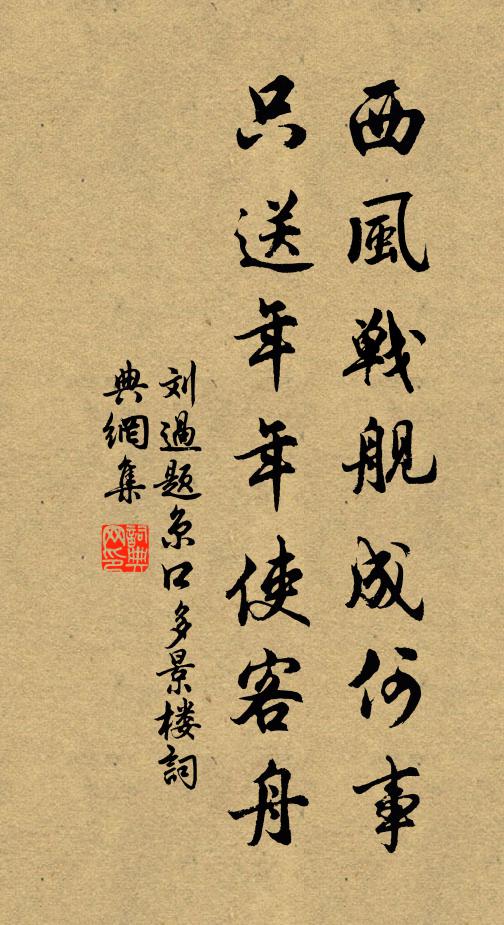 西風戦舰成何事
只送年年使客舟
刘過题京口多景楼詞
典網集
詞典網印